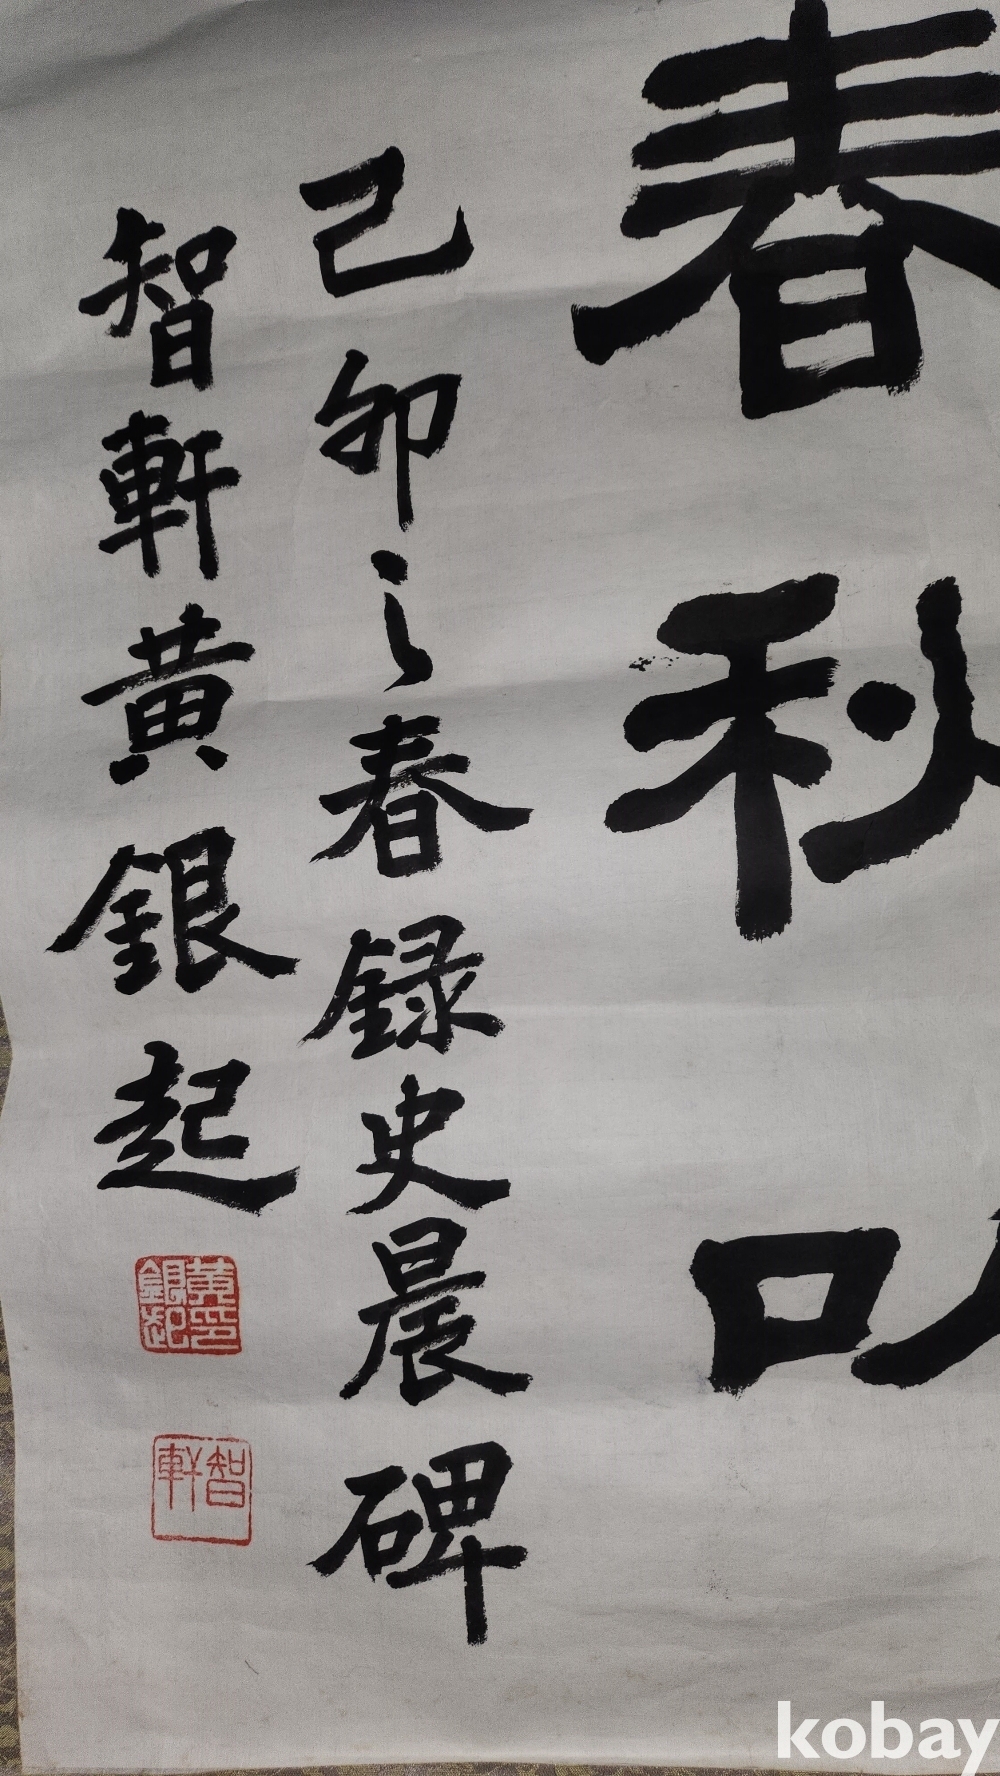 春秋
己卯之春録史晨碑
智軒黄銀起
黄銀起印
智軒
kobay